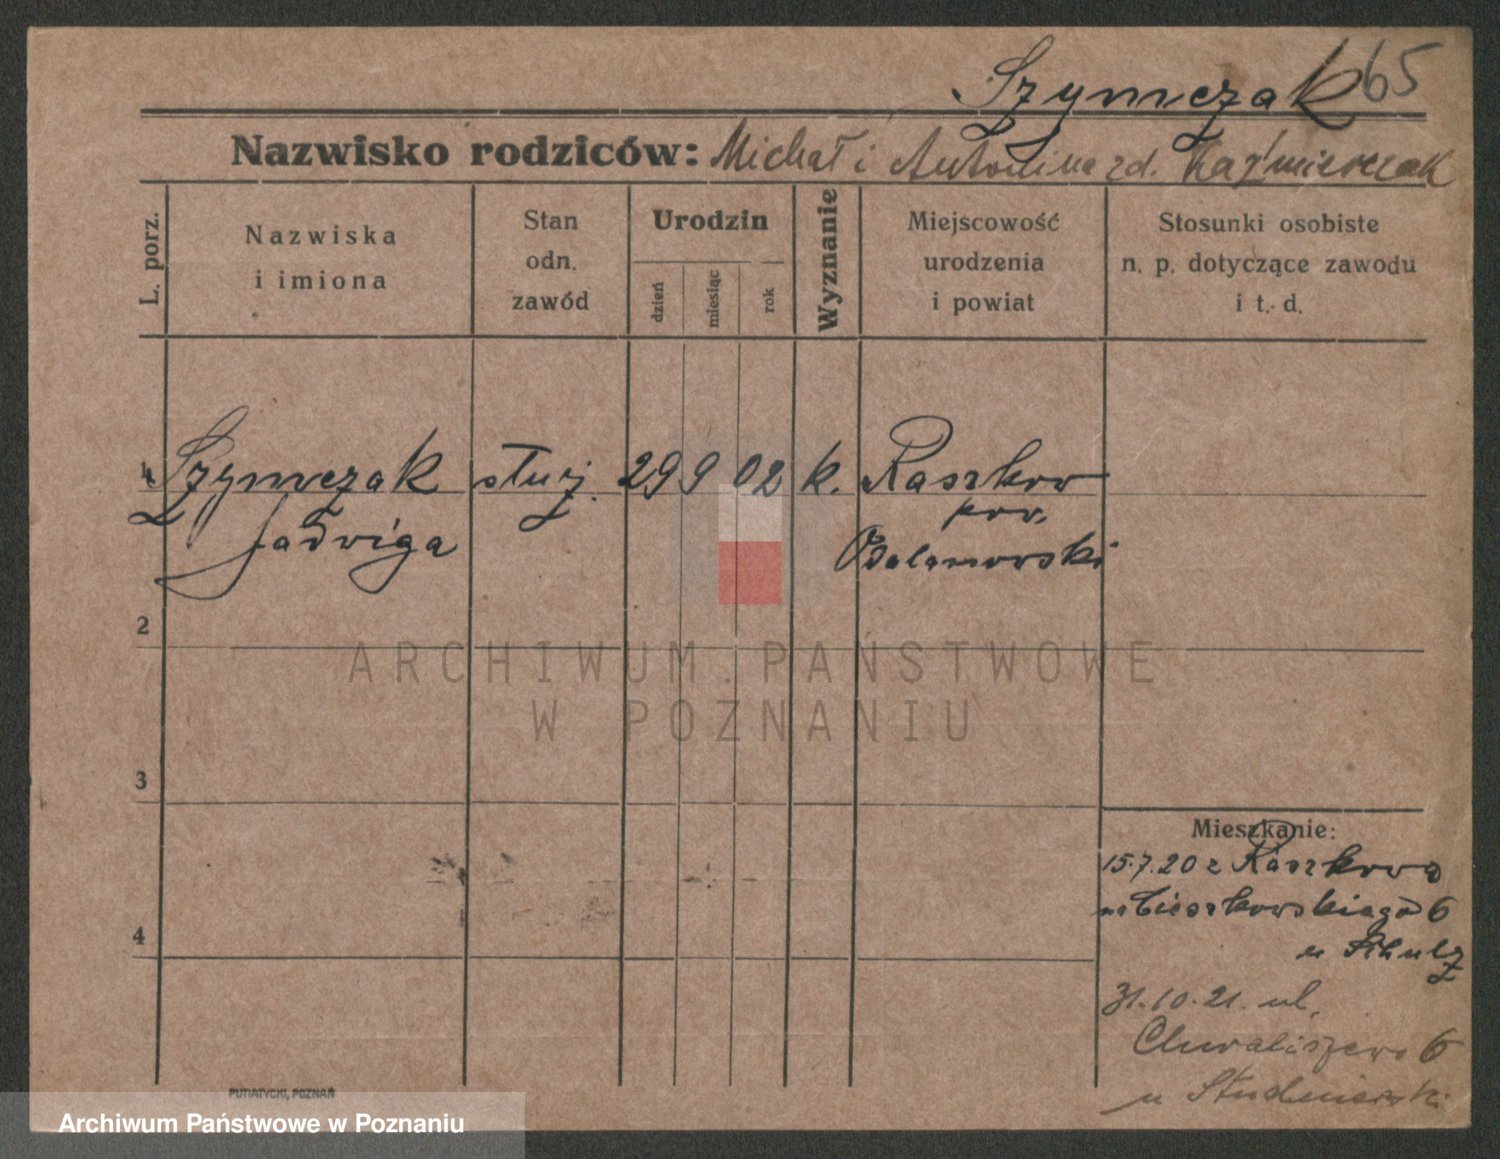 Szymczak 65
Nazwisko rodziców: Michał i Antonina zd. Kaźmierczak
L. porz.
Nazwiska
i imiona
Stan
odn.
zawód
Urodzin
dzień
miesiąc
rok
Wyznanie
Miejscowość
urodzenia
i powiat
Stosunki osobiste
n. p. dotyczące zawodu
i t. d.
1 Szymczak służ. 29 9 02 k. Raszkow
Jadwiga
pow.
Odalanowski
2
3
4
Mieszkanie:
15.7.20 z Raszkowa
Cieszkowskiego 6
u Schulz
31.10.21. ul.
Chwaliszewo 6
u
PUTIATYCKI, POZNAŃ
ARCHIWUM PAŃSTWOWE
W POZNANIU
Archiwum Państwowe w Poznaniu